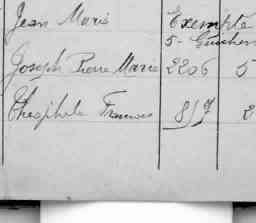 Jean Marie Exempté
5 - Guichen
Joseph Pierre Marie 2206 5
Théophile Francois 817 2